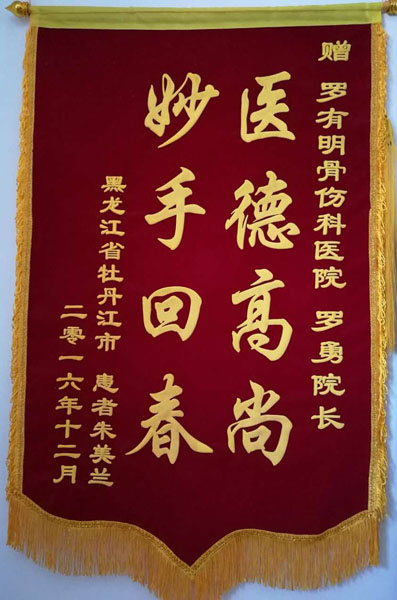 赠 罗有明骨伤科医院 罗勇院长
医德高尚
妙手回春
黑龙江省牡丹江市 患者朱美兰
二零一六年十二月